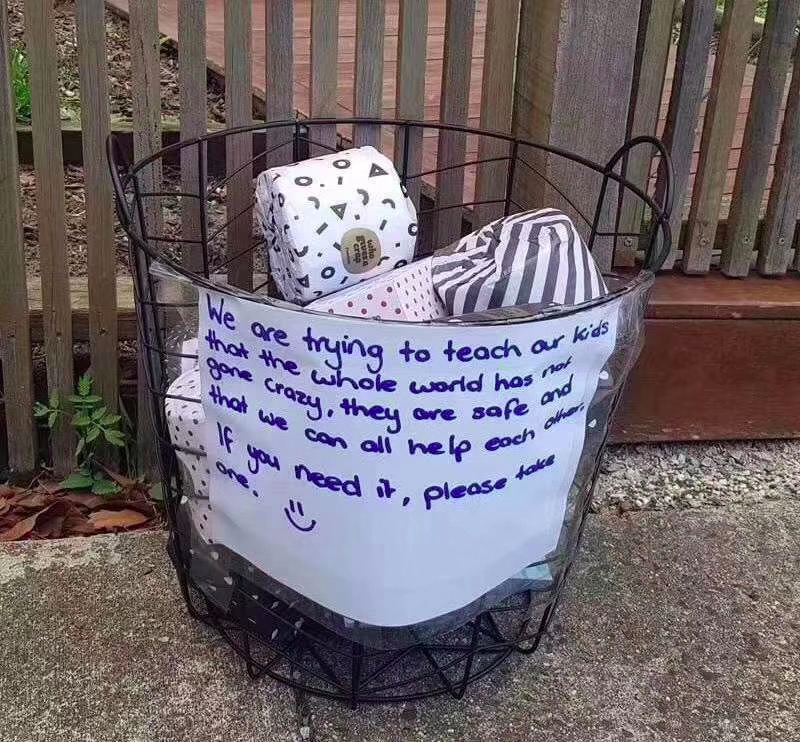 who
gives a
crap
We are trying to teach our kids
that the whole world has not
gone crazy, they are safe and
that we can all help each other.
If you need it, please take
one. "